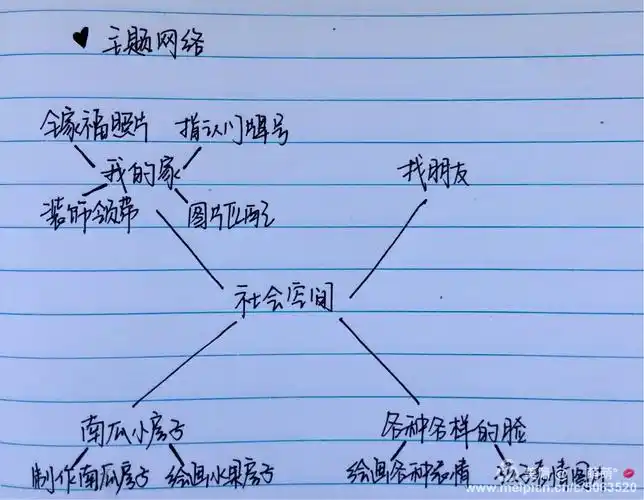 ♥ 主题网络
全家福照片 指认门牌号
我的家 找朋友
装饰领带 图片匹配
社会空间
南瓜小房子 各种各样的脸
制作南瓜房子 绘画水果房子 绘画各种表情 表情图片
www.meipian.cn/9063520